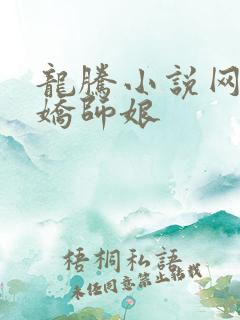 龍騰小説网
嬌師娘
梧桐私語
未經同意禁止轉載